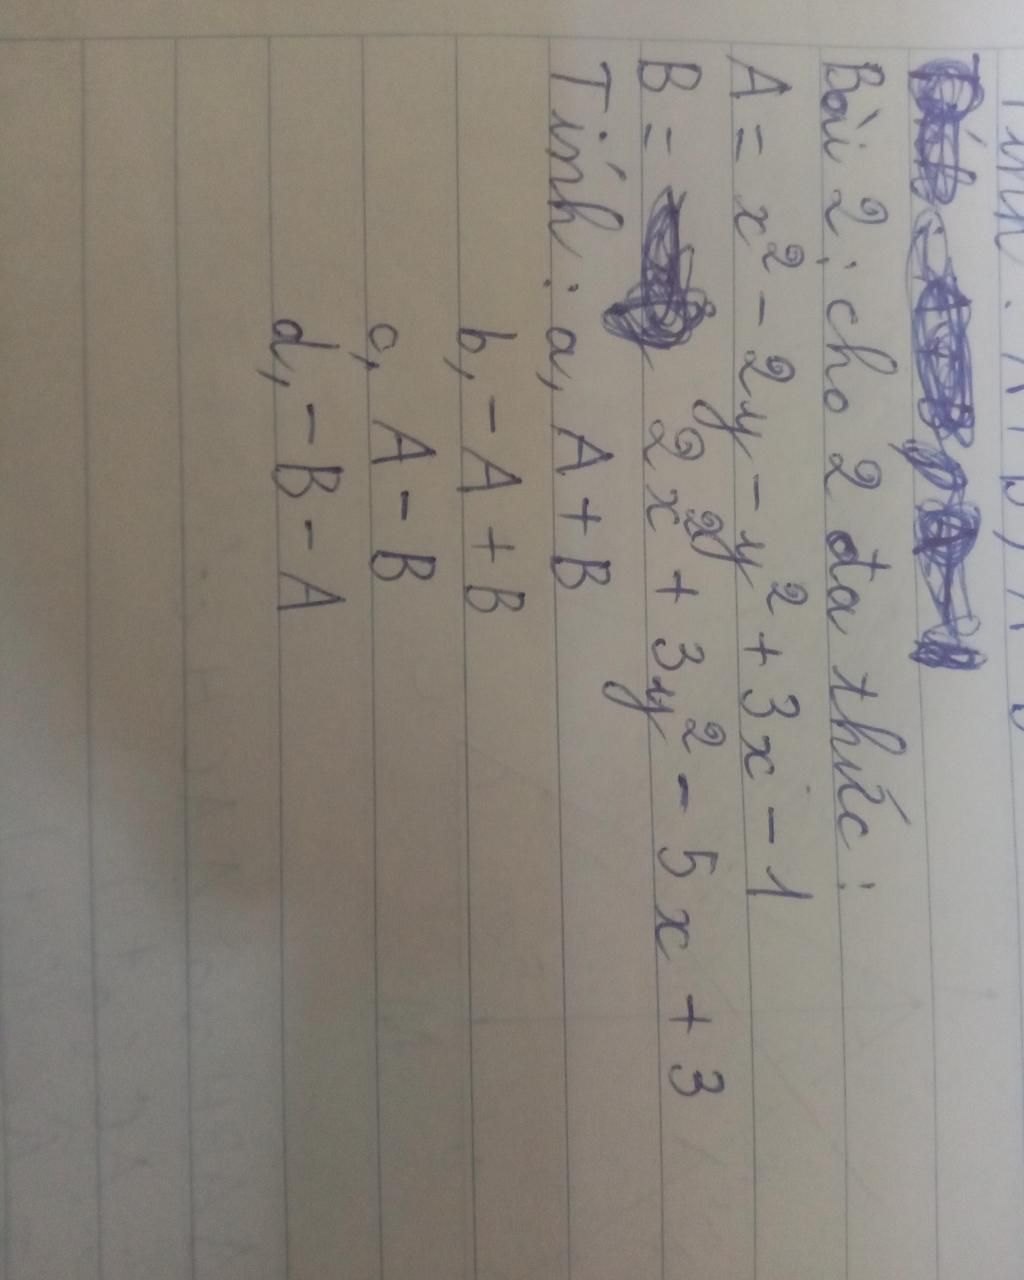 Bài 2: cho 2 đa thức:
A = x² - 2y - y² + 3x - 1
B = 2x² + 3y² - 5x + 3
Tính: a, A + B
b, - A + B
c, A - B
d, - B - A